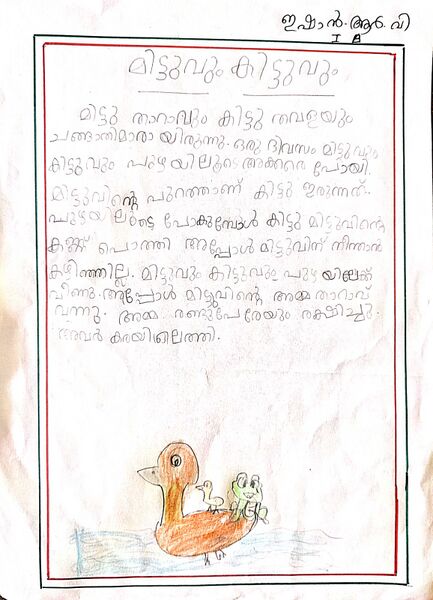 ഇഷാൻ. ആർ. വി
I B
മിട്ടുവും കിട്ടുവും
മിട്ടു താറാവും കിട്ടു തവളയും
ചങ്ങാതിമാരായിരുന്നു. ഒരു ദിവസം മിട്ടുവും
കിട്ടുവും പുഴയിലൂടെ അക്കരെ പോയി.
മിട്ടുവിന്റെ പുറത്താണ് കിട്ടു ഇരുന്നത്.
പുഴയിലൂടെ പോകുമ്പോൾ കിട്ടു മിട്ടുവിന്റെ
കണ്ണ് പൊത്തി അപ്പോൾ മിട്ടുവിന് നീന്താൻ
കഴിഞ്ഞില്ല. മിട്ടുവും കിട്ടുവും പുഴയിലേക്ക്
വീണു. അപ്പോൾ മിട്ടുവിന്റെ അമ്മ താറാവ്
വന്നു. അമ്മ രണ്ടുപേരേയും രക്ഷിച്ചു.
അവർ കരയിലെത്തി.